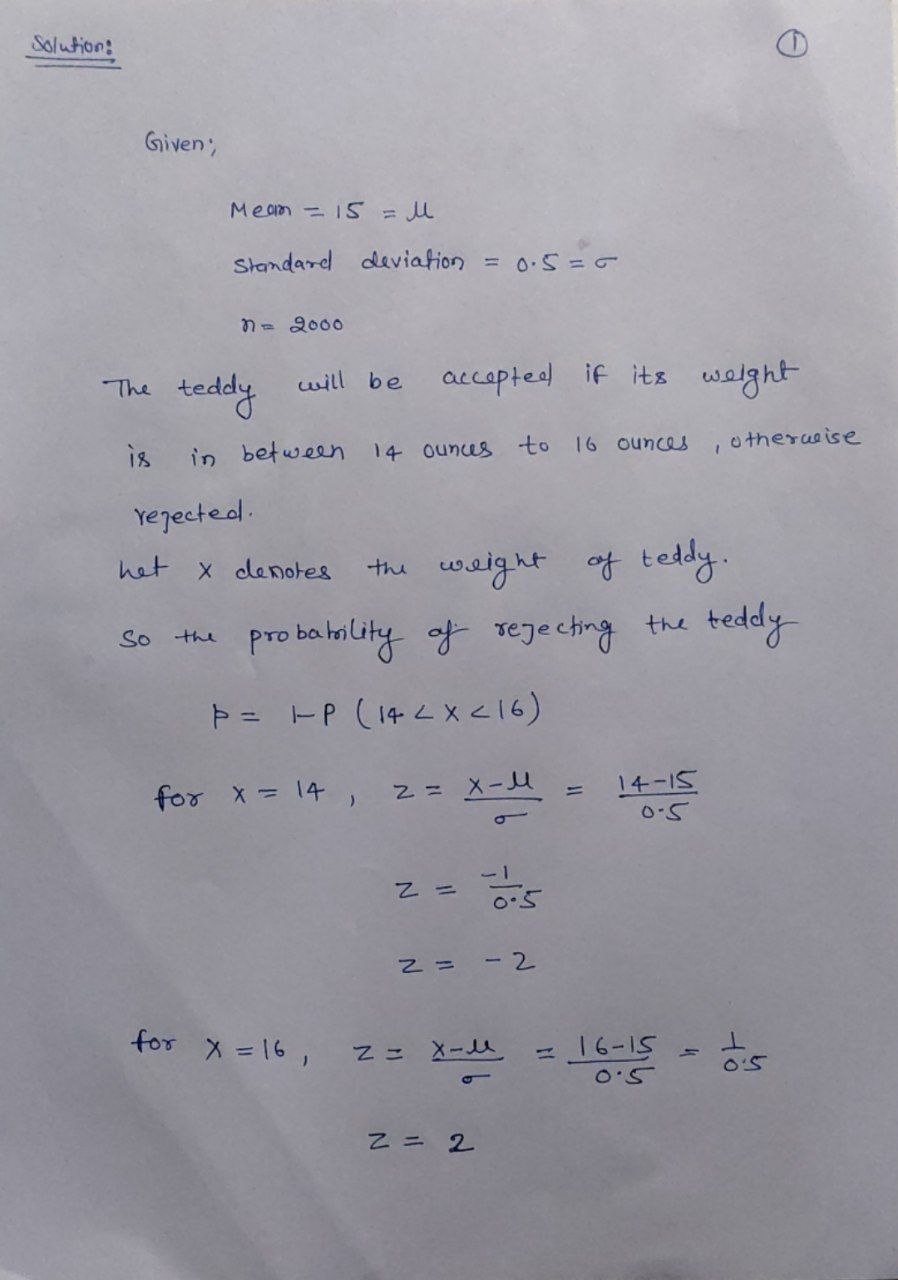 Solution: ①
Given;
Mean = 15 = μ
Standard deviation = 0.5 = σ
n = 2000
The teddy will be accepted if its weight
is in between 14 ounces to 16 ounces, otherwise
rejected.
Let x denotes the weight of teddy.
So the probability of rejecting the teddy
p = 1-P (14 < X < 16)
for X = 14, z = X-μ/σ = 14-15/0.5
z = -1/0.5
z = -2
for X = 16, z = X-μ/σ = 16-15/0.5 = 1/0.5
z = 2